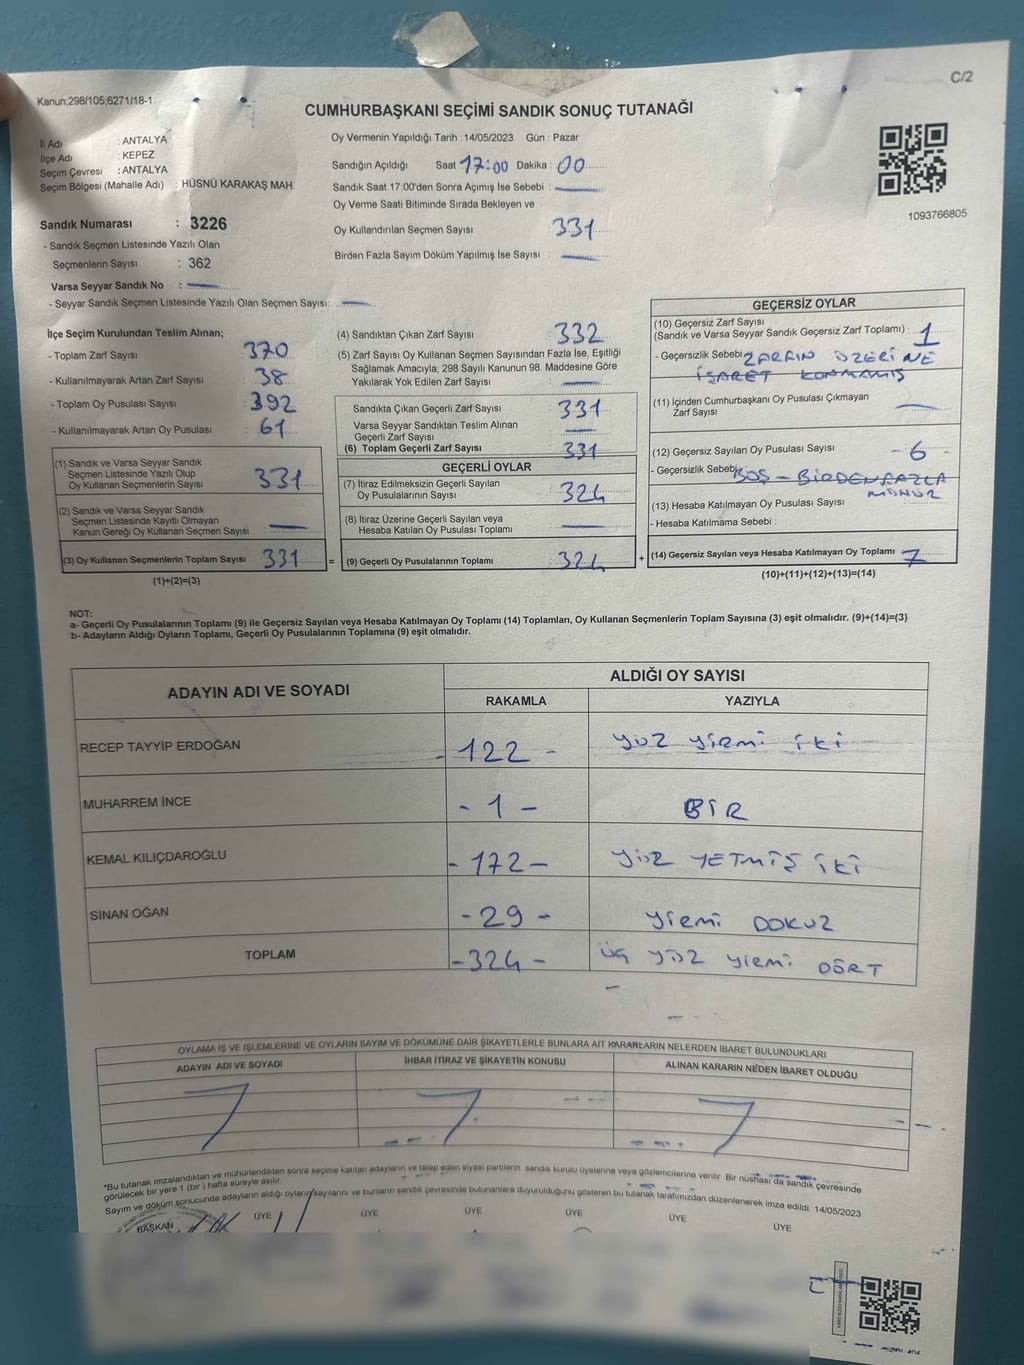 C/2
Kanun;298/105;6271/18-1
CUMHURBAŞKANI SEÇİMİ SANDIK SONUÇ TUTANAĞI
İl Adı : ANTALYA
İlçe Adı : KEPEZ
Seçim Çevresi : ANTALYA
Seçim Bölgesi (Mahalle Adı) : HÜSNÜ KARAKAŞ MAH.
Sandık Numarası : 3226
- Sandık Seçmen Listesinde Yazılı Olan
Seçmenlerin Sayısı : 362
Varsa Seyyar Sandık No :
- Seyyar Sandık Seçmen Listesinde Yazılı Olan Seçmen Sayısı:
Oy Vermenin Yapıldığı Tarih :14/05/2023 Gün : Pazar
Sandığın Açıldığı Saat 17:00 Dakika : 00
Sandık Saat 17:00'den Sonra Açımış İse Sebebi :
Oy Verme Saati Bitiminde Sırada Bekleyen ve
Oy Kullandırılan Seçmen Sayısı : 331
Birden Fazla Sayım Döküm Yapılmış İse Sayısı :
1093766805
İlçe Seçim Kurulundan Teslim Alınan;
- Toplam Zarf Sayısı : 370
- Kullanılmayarak Artan Zarf Sayısı : 38
- Toplam Oy Pusulası Sayısı : 392
- Kullanılmayarak Artan Oy Pusulası : 61
(1) Sandık ve Varsa Seyyar Sandık
Seçmen Listesinde Yazılı Olup
Oy Kullanan Seçmenlerin Sayısı : 331
(2) Sandık ve Varsa Seyyar Sandık
Seçmen Listesinde Kayıtlı Olmayan
Kanun Gereği Oy Kullanan Seçmen Sayısı :
(3) Oy Kullanan Seçmenlerin Toplam Sayısı : 331
(1)+(2)=(3)
(4) Sandıktan Çıkan Zarf Sayısı : 332
(5) Zarf Sayısı Oy Kullanan Seçmen Sayısından Fazla İse, Eşitliği
Sağlamak Amacıyla, 298 Sayılı Kanunun 98. Maddesine Göre
Yakılarak Yok Edilen Zarf Sayısı :
Sandıkta Çıkan Geçerli Zarf Sayısı : 331
Varsa Seyyar Sandıktan Teslim Alınan
Geçerli Zarf Sayısı :
(6) Toplam Geçerli Zarf Sayısı : 331
GEÇERLİ OYLAR
(7) İtiraz Edilmeksizin Geçerli Sayılan
Oy Pusulalarının Sayısı : 324
(8) İtiraz Üzerine Geçerli Sayılan veya
Hesaba Katılan Oy Pusulası Toplamı :
= (9) Geçerli Oy Pusulalarının Toplamı : 324 +
GEÇERSİZ OYLAR
(10) Geçersiz Zarf Sayısı
(Sandık ve Varsa Seyyar Sandık Geçersiz Zarf Toplamı) : 1
- Geçersizlik Sebebi : ZARFIN ÜZERİNE
İŞARET KONMAMIŞ
(11) İçinden Cumhurbaşkanı Oy Pusulası Çıkmayan
Zarf Sayısı :
(12) Geçersiz Sayılan Oy Pusulası Sayısı : - 6 -
- Geçersizlik Sebebi : BOŞ - BİRDEN FAZLA
MÜHÜR
(13) Hesaba Katılmayan Oy Pusulası Sayısı :
- Hesaba Katılmama Sebebi :
(14) Geçersiz Sayılan veya Hesaba Katılmayan Oy Toplamı : 7
(10)+(11)+(12)+(13)=(14)
NOT:
a- Geçerli Oy Pusulalarının Toplamı (9) ile Geçersiz Sayılan veya Hesaba Katılmayan Oy Toplamı (14) Toplamları, Oy Kullanan Seçmenlerin Toplam Sayısına (3) eşit olmalıdır. (9)+(14)=(3)
b- Adayların Aldığı Oyların Toplamı, Geçerli Oy Pusulalarının Toplamına (9) eşit olmalıdır.
ADAYIN ADI VE SOYADI
ALDIĞI OY SAYISI
RAKAMLA YAZIYLA
RECEP TAYYİP ERDOĞAN - 122 - yüz yirmi iki
MUHARREM İNCE - 1 - BİR
KEMAL KILIÇDAROĞLU - 172 - yüz YETMİŞ iki
SİNAN OĞAN - 29 - yirmi DOKUZ
TOPLAM - 324 - üç yüz yirmi DÖRT
OYLAMA İŞ VE İŞLEMLERİNE VE OYLARIN SAYIM VE DÖKÜMÜNE DAİR ŞİKAYETLERLE BUNLARA AİT KARARLARIN NELERDEN İBARET BULUNDUKLARI
ADAYIN ADI VE SOYADI İHBAR İTİRAZ VE ŞİKAYETİN KONUSU ALINAN KARARIN NEDEN İBARET OLDUĞU
*Bu tutanak imzalandıktan ve mühürlendikten sonra seçime katılan adayların ve talep eden siyasi partilerin sandık kurulu üyelerine veya gözlemcilerine verilir. Bir nüshası da sandık çevresinde
görülecek bir yere 1 (bir) hafta süreyle asılır.
Sayım ve döküm sonucunda adayların aldığı oyların sayılarını ve bunların sandık çevresinde bulunanlara duyurulduğunu gösteren bu tutanak tarafımızdan düzenlenerek imza edildi. 14/05/2023
BAŞKAN ÜYE ÜYE ÜYE ÜYE ÜYE ÜYE